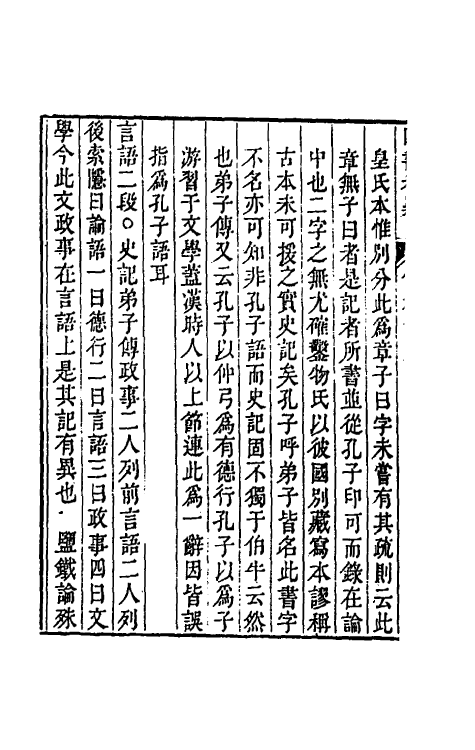 皇氏本惟別分此爲章子曰字未嘗有其疏則云此
章無子曰者是記者所書並從孔子印可而錄在論
中也二字之無尤確鑿物氏以彼國別藏寫本謬稱
古本未可援之實史記矣孔子呼弟子皆名此書字
不名亦可知非孔子語而史記固不獨于伯牛云然
也弟子傳又云孔子以仲弓爲有德行孔子以爲子
游習于文學蓋漢時人以上節連此爲一辭因皆誤
指爲孔子語耳
言語二段○史記弟子傳政事二人列前言語二人列
後索隱曰論語一曰德行二曰言語三曰政事四曰文
學今此文政事在言語上是其記有異也 鹽鐵論殊